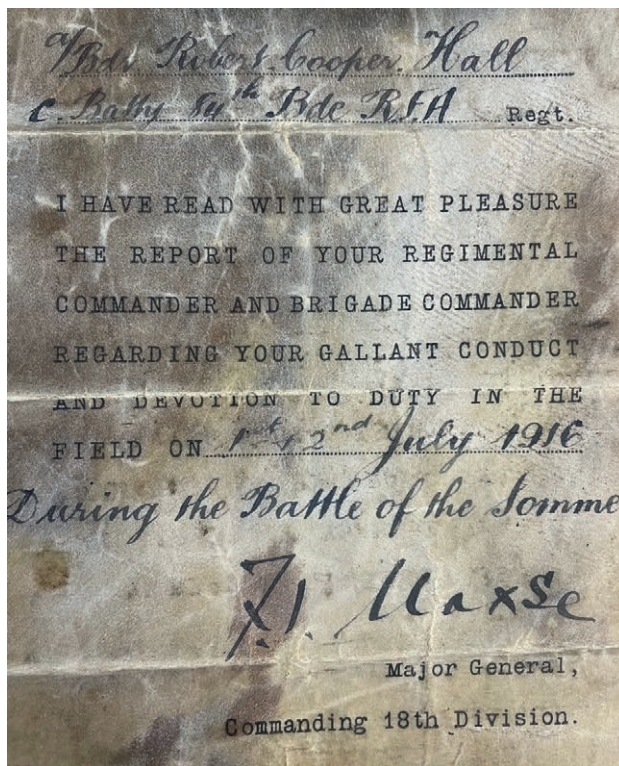 a/Bdr Robert. Cooper. Hall
C. Batty 84th Bde R.F.A Regt.
I HAVE READ WITH GREAT PLEASURE
THE REPORT OF YOUR REGIMENTAL
COMMANDER AND BRIGADE COMMANDER
REGARDING YOUR GALLANT CONDUCT
AND DEVOTION TO DUTY IN THE
FIELD ON 1st + 2nd July 1916
During the Battle of the Somme
F.I. Maxse
Major General,
Commanding 18th Division.